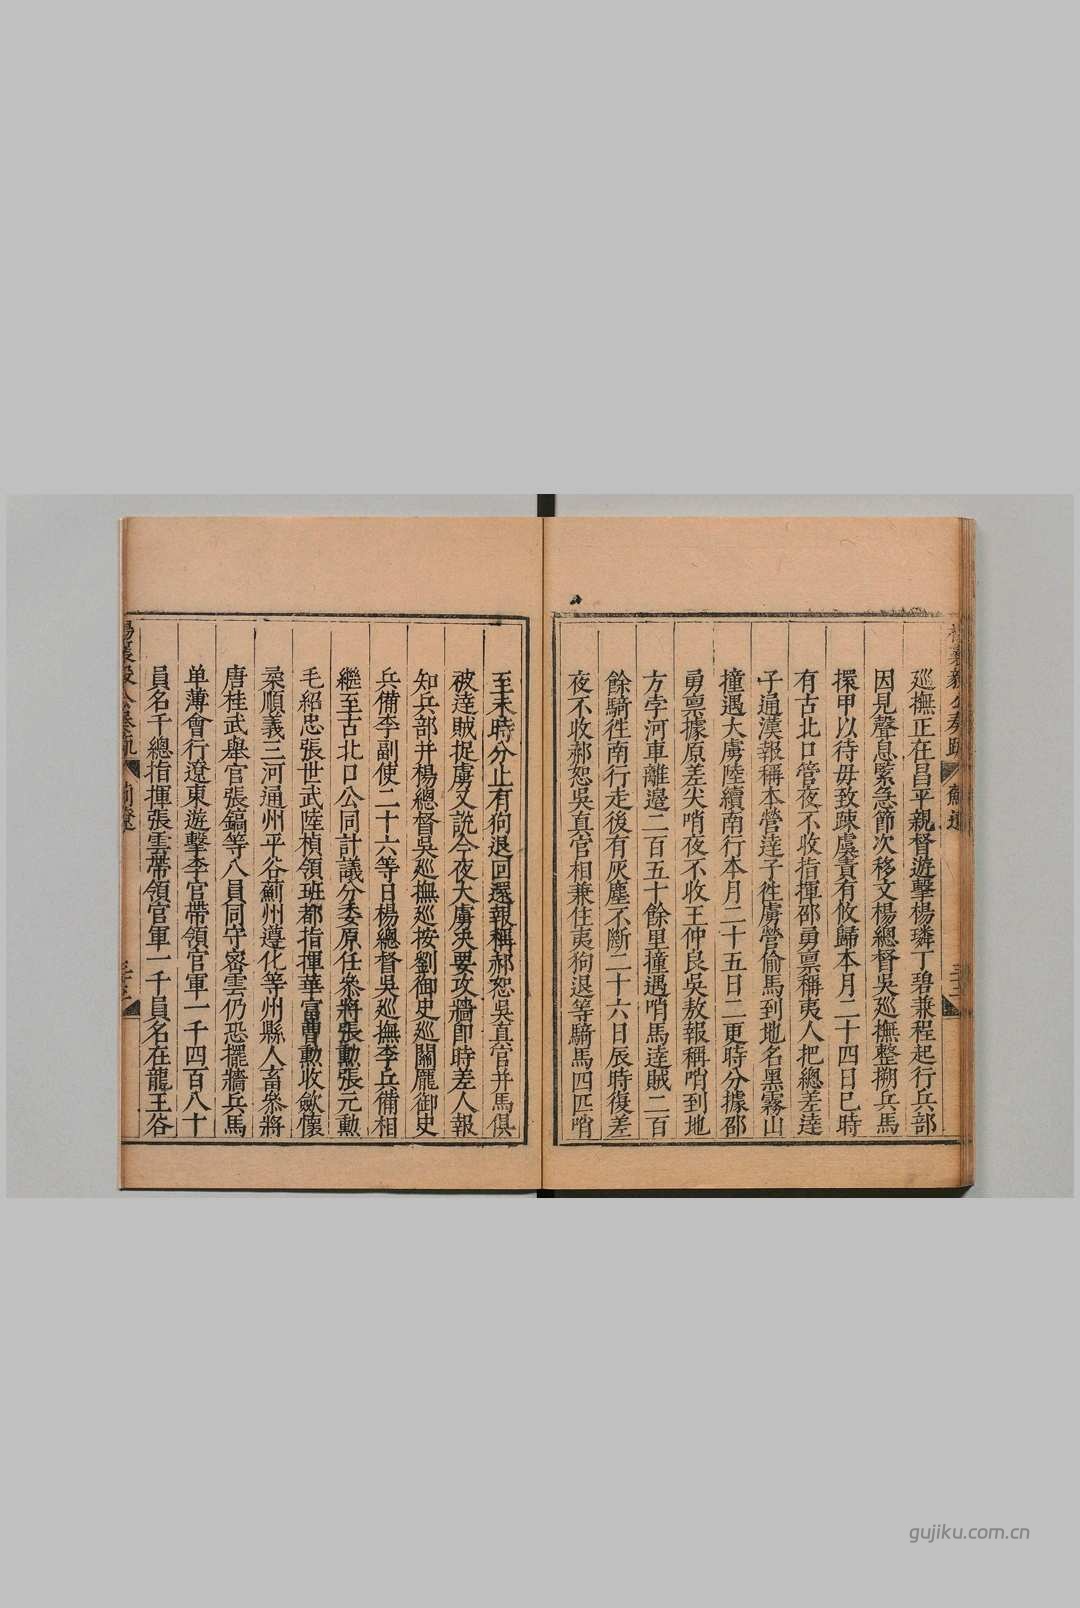 楊襄毅公奏疏 薊遼 三十二
巡撫正在昌平親督遊擊楊璘丁碧兼程起行兵部
因見聲息緊急節次移文楊總督吳巡撫整搠兵馬
擐甲以待毋致疎虞責有攸歸本月二十四日巳時
有古北口管夜不收指揮邵勇禀稱夷人把總差逹
子通漢報稱本營逹子徃虜營偷馬到地名黑霧山
撞遇大虜陸續南行本月二十五日二更時分據邵
勇禀據原差尖哨夜不收王仲良吳敖報稱哨到地
方字河車離邉二百五十餘里撞遇哨馬逹賊二百
餘騎徃南行走後有灰塵不斷二十六日辰時復差
夜不收郝恕吳真官相兼住夷狗退等騎馬四匹哨
至未時分止有狗退回還報稱郝恕吳真官并馬俱
被逹賊捉虜又說今夜大虜决要攻墻即時差人報
知兵部并楊總督吳巡撫巡按劉御史巡關龎御史
兵備李副使二十六等日楊總督吳巡撫李兵備相
繼至古北口公同計議分委原任叅將張勲張元勲
毛紹忠張世武陸楨領班都指揮華富曹勲收歛懷
柔順義三河通州平谷薊州遵化等州縣人畜叅將
唐桂武舉官張鎬等八員同守密雲仍恐擺墻兵馬
单薄會行遼東遊擊李官帶領官軍一千四百八十
員名千總指揮張雲帶領官軍一千員名在龍王谷
楊襄毅公奏疏 薊遼 三十三
gujiku.com.cn